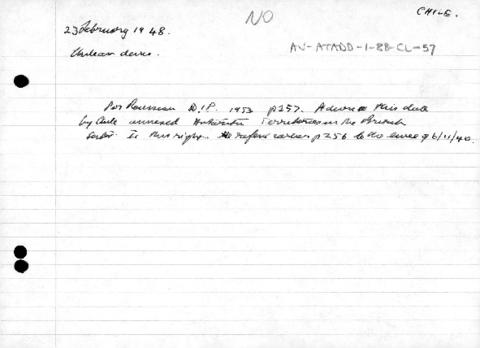 NO
CHILE.
23 February 1948.
AU-ATADD-1-BB-CL-57
Chilean decree.
Per D.I.P. 1953 p257. A decree this date
by Chile annexed Antarctic Territories in the
sector. Is this right. He refers earlier p256 to do decree of 6/11/40.